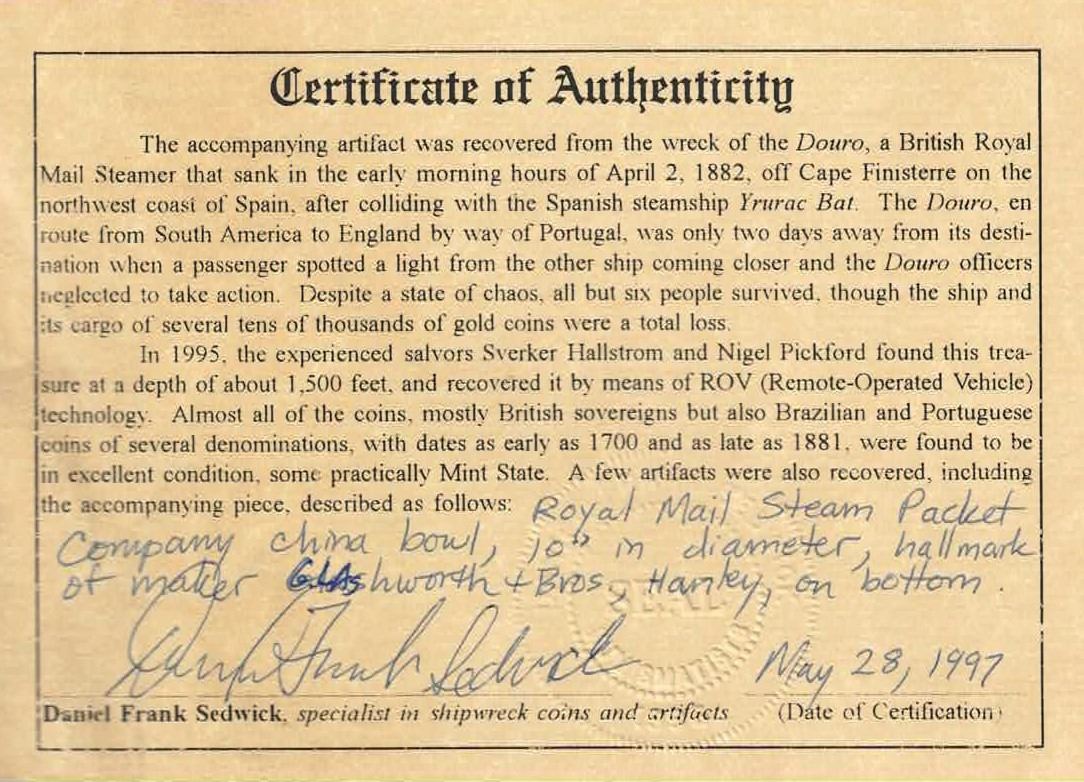 Certificate of Authenticity
The accompanying artifact was recovered from the wreck of the Douro, a British Royal
Mail Steamer that sank in the early morning hours of April 2, 1882, off Cape Finisterre on the
northwest coast of Spain, after colliding with the Spanish steamship Yrurac Bat. The Douro, en
route from South America to England by way of Portugal, was only two days away from its desti-
nation when a passenger spotted a light from the other ship coming closer and the Douro officers
neglected to take action. Despite a state of chaos, all but six people survived, though the ship and
its cargo of several tens of thousands of gold coins were a total loss.
In 1995, the experienced salvors Sverker Hallstrom and Nigel Pickford found this trea-
sure at a depth of about 1,500 feet, and recovered it by means of ROV (Remote-Operated Vehicle)
technology. Almost all of the coins, mostly British sovereigns but also Brazilian and Portuguese
coins of several denominations, with dates as early as 1700 and as late as 1881, were found to be
in excellent condition, some practically Mint State. A few artifacts were also recovered, including
the accompanying piece, described as follows: Royal Mail Steam Packet
Company china bowl, 10" in diameter, hallmark
of maker Ashworth + Bros, Hanley, on bottom.
SEAL
Daniel Frank Sedwick May 28, 1997
Daniel Frank Sedwick, specialist in shipwreck coins and artifacts (Date of Certification)